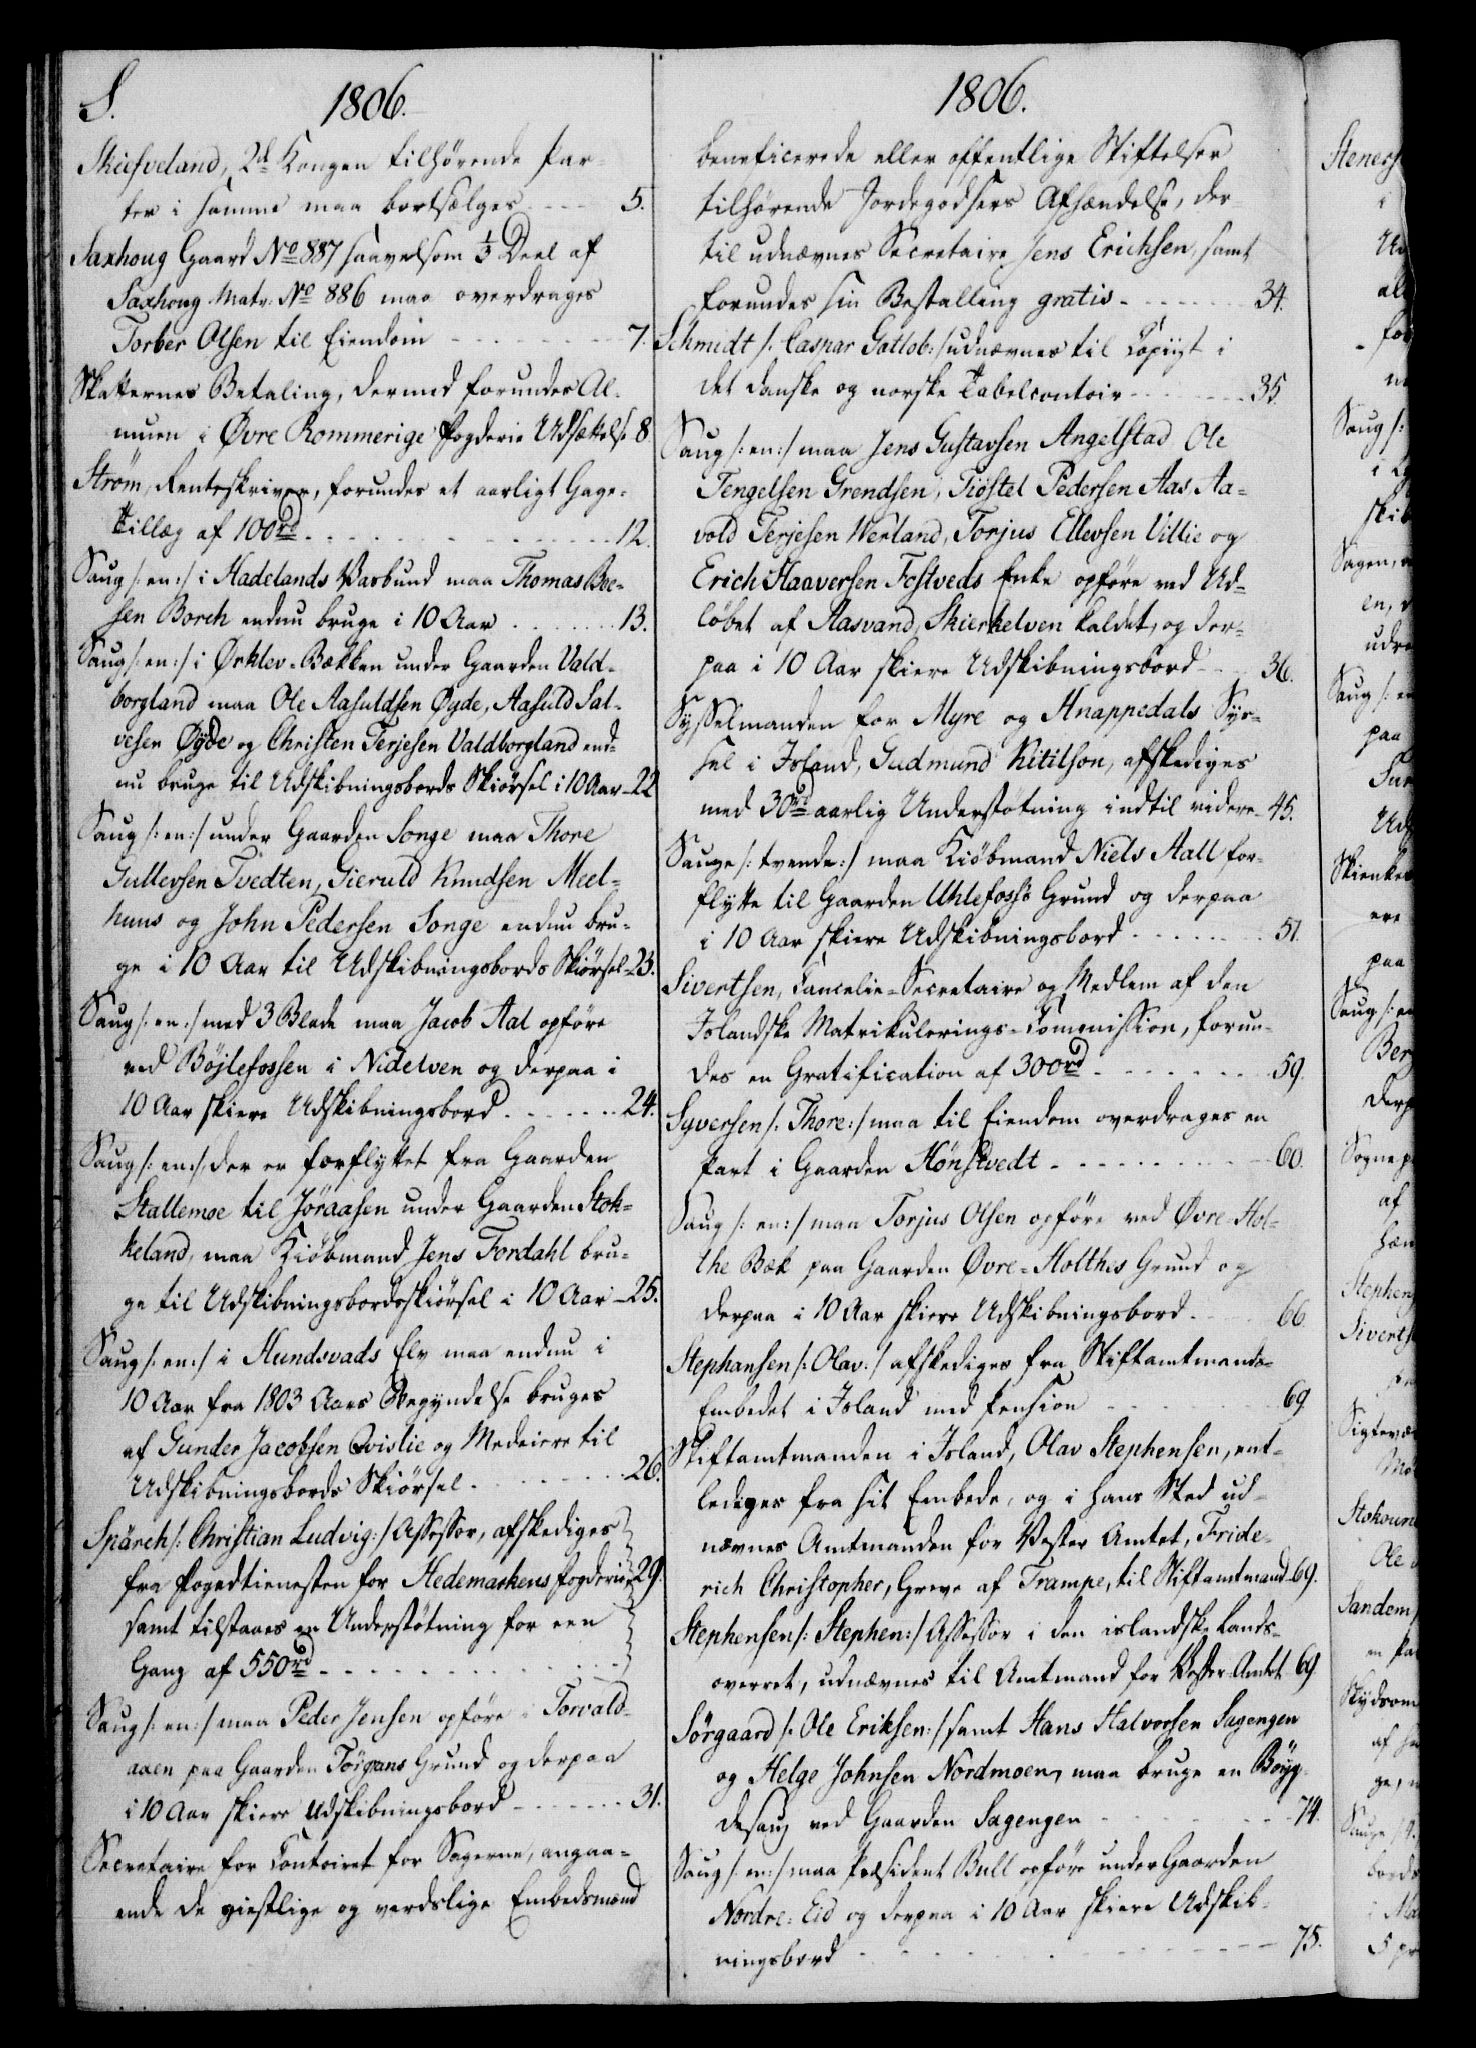 S.
1806.
Skiefveland, 2de Kongen tilhørende Par-
ter i samme maa bortsælges 5.
Saxhoug Gaard No 887 saavelsom 1/3 Deel af
Saxhoug Matr: No 886 maa overdrages
Torber Olsen til Eiendom 7.
Skatternes Betaling, dermed forundes Al-
muen i Øvre Rommerige Fogderie Udsættelse 8
Strøm, Renteskriver, forundes et aarligt Gage-
tillæg af 100rd 12.
Saug /:en:/ i Hadelands Warbund maa Thomas Boe-
sen Borch endnu bruge i 10 Aar 13.
Saug /:en:/ i Ørklev-Bækken under Gaarden Vald-
borgland maa Ole Aasuldsen Øyde, Aasuld Sal-
vesen Øyde og Christen Terjesen Valdborgland end-
nu bruge til Udskibningsbords Skiørsel i 10 Aar 22
Saug /:en:/ under Gaarden Songe maa Thore
Gullevsen Tvedten, Gieruld Knudsen Meel-
huus og John Pedersen Songe endnu bru-
ge i 10 Aar til Udskibningsbords Skiørsel 23.
Saug /:en:/ med 3 Blade maa Jacob Aal opføre
ved Böjlefossen i Nidelven og derpaa i
10 Aar skiere Udskibningsbord 24.
Saug /:en:/ der er forflyttet fra Gaarden
Stallemoe til Jöraasen under Gaarden Stok-
keland, maa Kiöbmand Jens Fordahl bru-
ge til Udskibningsbordsskiørsel i 10 Aar 25.
Saug /:en:/ i Hundsvads Elv maa endnu i
10 Aar fra 1803 Aars Begyndelse bruges
af Gunder Jacobsen Qvislie og Medeiere til
Udskibningsbords Skiørsel 26.
Spärch /:Christian Ludvig:/ Assessor, afskediges
fra Fogedtienesten for Hedemarkens Fogderie 29.
samt tilstaaes en Understøtning for een
Gang af 550rd
Saug /:en:/ maa Peder Jensen opføre i Torvald-
aaen paa Gaarden Törgans Grund og derpaa
i 10 Aar skiere Udskibningsbord 31.
Secretaire for Contoiret for Sagerne, angaa-
ende de giestlige og verdslige Embedsmænd
1806.
beneficerede eller offentlige Stiftelser
tilhørende Jordegodsers Afhændelse, der-
til udnævnes Secretaire Jens Erichsen, samt
forundes sin Bestalling gratis 34.
Schmidt /:Caspar Gatlob:/ udnævnes til Copiist i
det danske og norske Tabelcontoir 35
Saug /:en:/ maa Jens Gustavsen Angelstad Ole
Tengelsen Grendsen, Tiöstel Pedersen Aas, Aa-
vold Terjesen Werland, Torjus Ellevsen Villie og
Erich Haaversen Fostveds Enke opføre ved Ud-
løbet af Aasvand, Skierkelven kaldet, og der-
paa i 10 Aar skiere Udskibningsbord 36.
Sysselmanden for Myre og Hnappedals Sys-
sel i Island, Gudmund Kitilson, afskediges
med 30rd aarlig Understøtning indtil videre 45.
Sauge /:tvende:/ maa Kiöbmand Niels Aall for-
flytte til Gaarden Uhlefoss's Grund og derpaa
i 10 Aar skiere Udskibningsbord 51.
Sivertsen, Cancelie-Secretaire og Medlem af den
Islandske Matrikulerings-Commission, forun-
des en Gratification af 300rd 59.
Syversen /:Thore:/ maa til Eiendom overdrages en
Part i Gaarden Hönstvedt 60.
Saug /:en:/ maa Torjus Olsen opføre ved Øvre-Hol-
the Bæk paa Gaarden Øvre-Holthes Grund og
derpaa i 10 Aar skiere Udskibningsbord 66.
Stephansen /:Olav:/ afskediges fra Stiftamtmands-
Embedet i Island med Pension 69
Stiftamtmanden i Island, Olav Stephensen, ent-
lediges fra sit Embede, og i hans Sted ud-
nævnes Amtmanden for Vester Amtet, Fride-
rich Christopher, Greve af Trampe, til Stiftamtmand 69.
Stephensen /:Stephen:/ Assessor i den islandske Lands-
overret, udnævnes til Amtmand for Vester-Amtet 69
Sörgaard /:Ole Eriksen:/ samt Hans Halvorsen Sagengen
og Helge Johnsen Nordmoen, maa bruge en Böyg-
desaug ved Gaarden Sagengen 74.
Saug /:en:/ maa Præsident Bull opføre under Gaarden
Nordre-Eid og derpaa i 10 Aar skiere Udskib-
ningsbord 75.